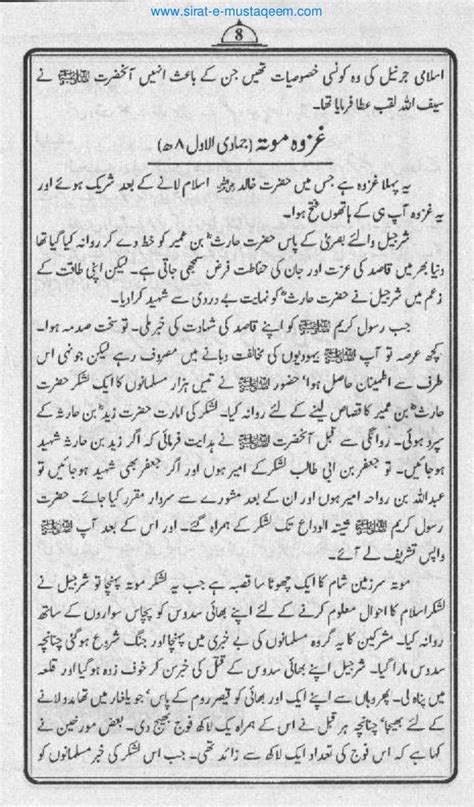 www.sirat-e-mustaqeem.com
8
اسلامی جرنیل کی وہ کونسی خصوصیات تھیں جن کے باعث انہیں آنحضرت ﷺ نے
سیف اللہ لقب عطا فرمایا تھا۔
غزوہ موتہ (جمادی الاول ۸ھ)
یہ پہلا غزوہ ہے جس میں حضرت خالد ؓ اسلام لانے کے بعد شریک ہوئے اور
یہ غزوہ آپ ہی کے ہاتھوں فتح ہوا۔
شرجیل والئے بصریٰ کے پاس حضرت حارث ؓ بن عمیر کو خط دے کر روانہ کیا گیا تھا
دنیا بھر میں قاصد کی عزت اور جان کی حفاظت فرض سمجھی جاتی ہے۔ لیکن اپنی طاقت کے
زعم میں شرجیل نے حضرت حارث ؓ کو نہایت بے دردی سے شہید کرا دیا۔
جب رسول کریم ﷺ کو اپنے قاصد کی شہادت کی خبر ملی۔ تو سخت صدمہ ہوا۔
کچھ عرصہ تو آپ ﷺ یہودیوں کی مخالفت دبانے میں مصروف رہے لیکن جونہی اس
طرف سے اطمینان حاصل ہوا' حضور ﷺ نے تین ہزار مسلمانوں کا ایک لشکر حضرت
حارث ؓ بن عمیر کا قصاص لینے کے لئے روانہ کیا۔ لشکر کی امارت حضرت زید ؓ بن حارثہ کے
سپرد ہوئی۔ روانگی سے قبل آنحضرت ﷺ نے ہدایت فرمائی کہ اگر زید بن حارثہ شہید
ہو جائیں۔ تو جعفر بن ابی طالب لشکر کے امیر ہوں اور اگر جعفر بھی شہید ہو جائیں تو
عبداللہ بن رواحہ امیر ہوں اور ان کے بعد مشورے سے سردار مقرر کیا جائے۔ حضرت
رسول کریم ﷺ ثنیتہ الوداع تک لشکر کے ہمراہ گئے۔ اور اس کے بعد آپ ﷺ
واپس تشریف لے آئے۔
موتہ سرزمین شام کا ایک چھوٹا سا قصبہ ہے جب یہ لشکر موتہ پہنچا تو شرجیل نے
لشکر اسلام کا احوال معلوم کرنے کے لئے اپنے بھائی سدوس کو پچاس سواروں کے ساتھ
روانہ کیا۔ مشرکین کا یہ گروہ مسلمانوں کی بے خبری میں پہنچا اور جنگ شروع ہو گئی چنانچہ
سدوس مارا گیا۔ شرجیل اپنے بھائی سدوس کے قتل کی خبر سن کر خوف زدہ ہو گیا اور قلعہ
میں پناہ لی۔ پھر وہاں سے اپنے ایک اور بھائی کو قیصر روم کے پاس' جو یلغار میں تھا مدد لانے
کے لئے بھیجا' چنانچہ ہر قل نے اس کے ہمراہ ایک لاکھ فوج بھیج دی۔ بعض مورخین نے
کہا ہے کہ اس فوج کی تعداد ایک لاکھ سے زائد تھی۔ جب اس لشکر کی خبر مسلمانوں کو